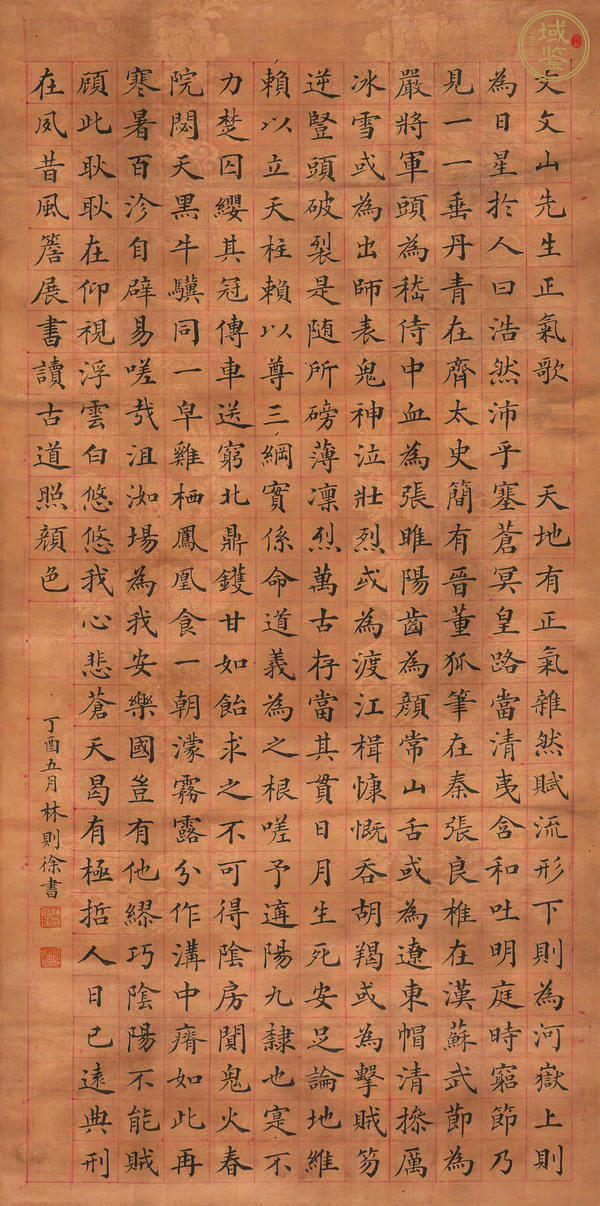 文文山先生正氣歌 天地有正氣雜然賦流形下則為河嶽上則
為日星於人曰浩然沛乎塞蒼冥皇路當清夷含和吐明庭時窮節乃
見一一垂丹青在齊太史簡有晉董狐筆在秦張良椎在漢蘇武節為
嚴將軍頭為嵇侍中血為張睢陽齒為顏常山舌或為遼東帽清操厲
冰雪或為出師表鬼神泣壯烈或為渡江楫慷慨吞胡羯或為擊賊笏
逆豎頭破裂是随所磅薄凛烈萬古存當其貫日月生死安足論地維
賴以立天柱賴以尊三綱實係命道義為之根嗟予遘陽九隸也寔不
力楚囚纓其冠傳車送窮北鼎鑊甘如飴求之不可得陰房闃鬼火春
院閟天黑牛驥同一皁雞栖鳳凰食一朝濛霧露分作溝中瘠如此再
寒暑百沴自辟易嗟哉沮洳場為我安樂國豈有他繆巧陰陽不能賊
顧此耿耿在仰視浮雲白悠悠我心悲蒼天曷有極哲人日已遠典刑
在夙昔風簷展書讀古道照顏色
丁酉五月林則徐書
域鑒